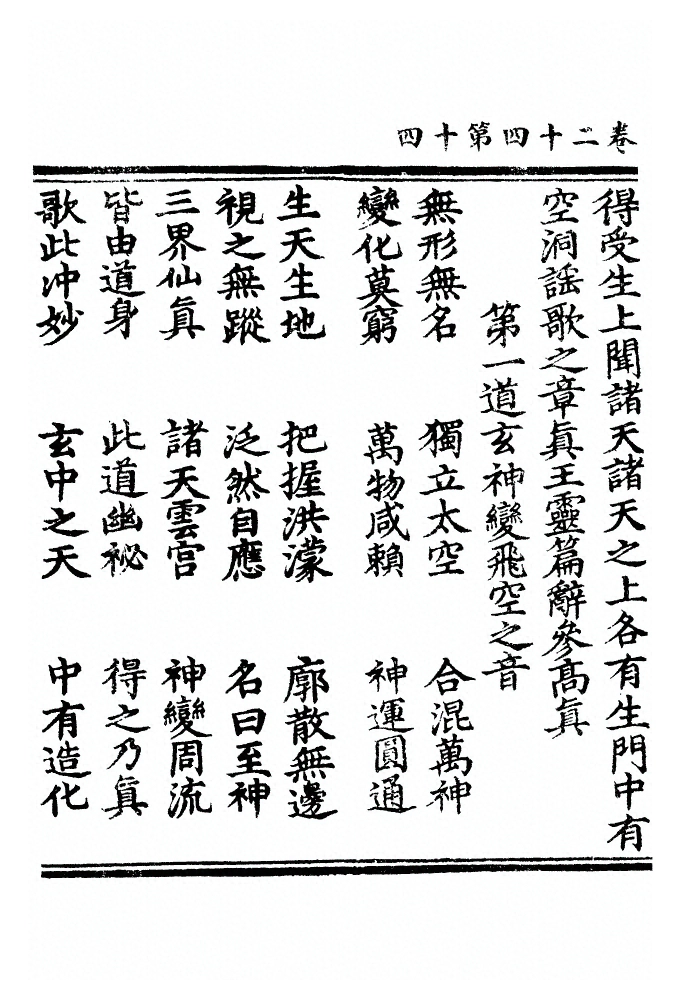 卷二十四第十四
得受生上聞諸天諸天之上各有生門中有
空洞謠歌之章眞王靈篇辭參高眞
第一道玄神變飛空之音
無形無名　獨立太空　合混萬神
變化莫窮　萬物咸賴　神運圓通
生天生地　把握洪濛　廓散無邊
視之無蹤　泛然自應　名曰至神
三界仙眞　諸天雲宮　神變周流
皆由道身　此道幽祕　得之乃眞
歌此沖妙　玄中之天　中有造化